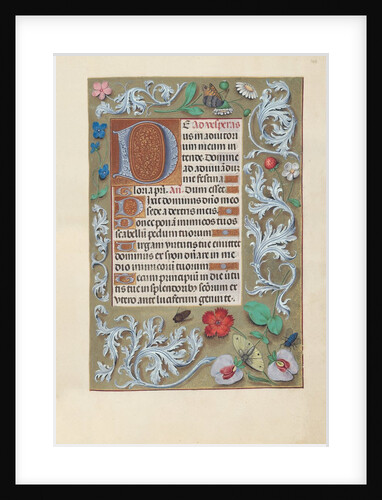 E Ad vesperas
us in adiutori
um meum in
tende. Domine
ad adiuuādū
me festina
Gloria pri. An. Dum esset
Dixit dominus dño meo
sede a dextris meis.
Donec ponā inimicos tuos
scabellū pedum tuorum
Uirgam uirtutis tue emittet
dominus ex syon dñare in me
dio inimicorū tuorum
Tecum principiū in die uirtu
tis tue in splendorib9 sc̄orum ex
vtero ante luciferum genui te.